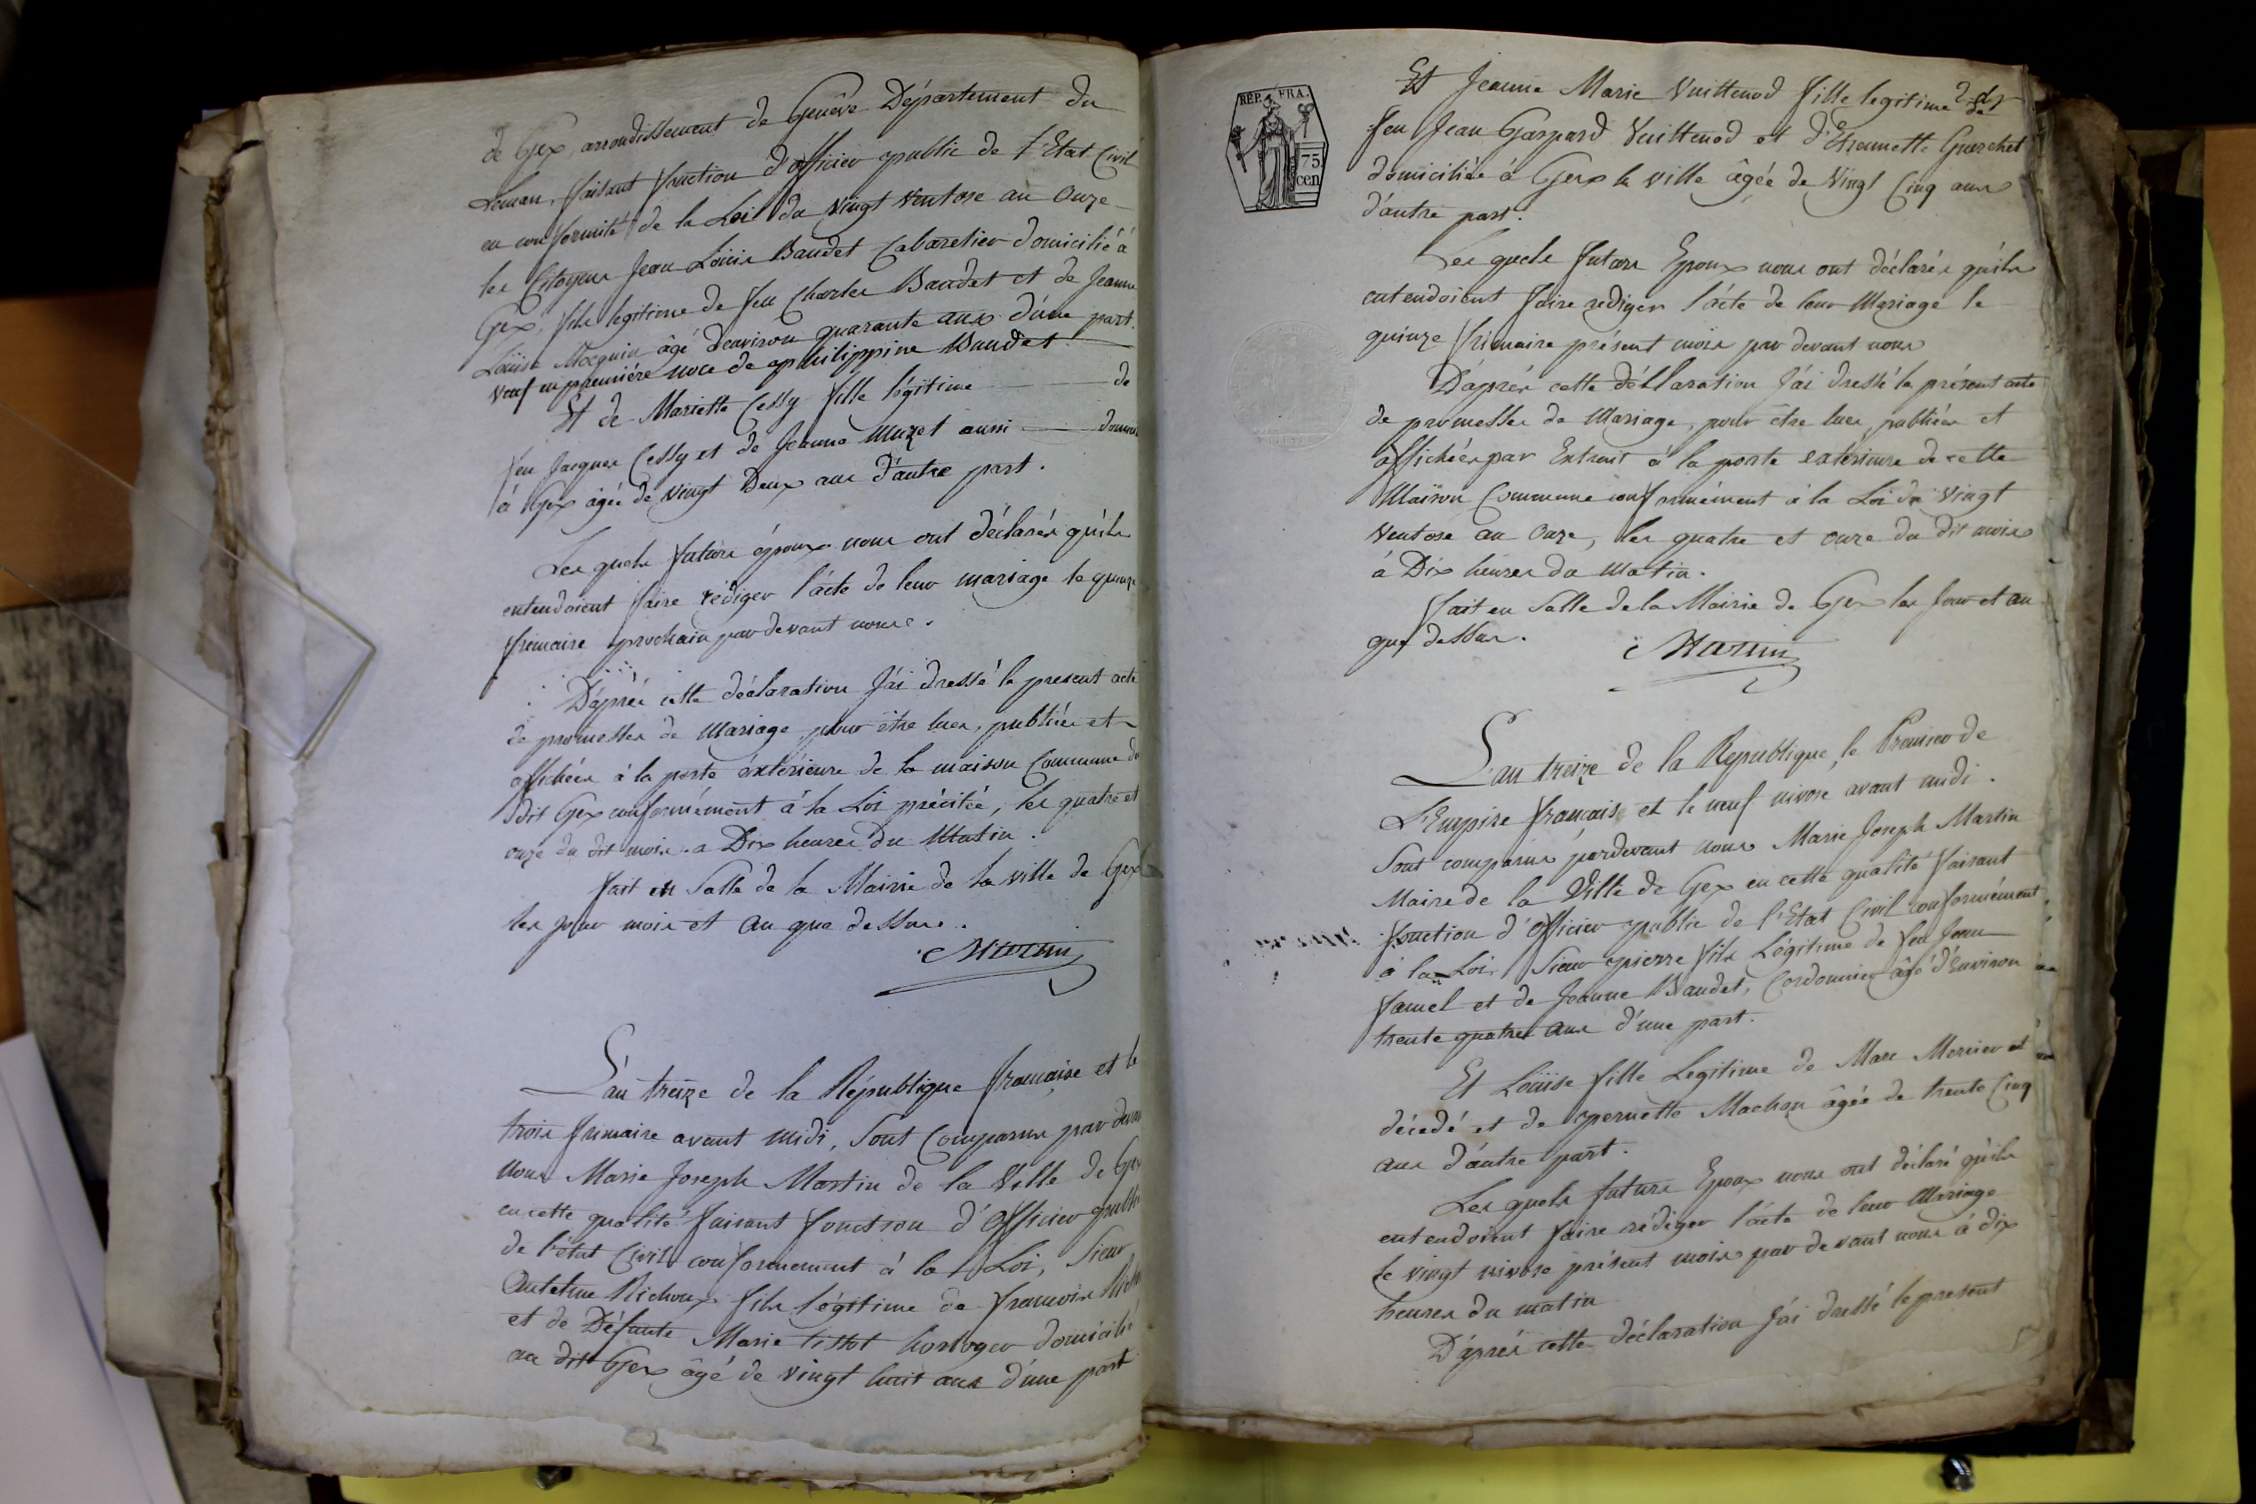 de Gex, arrondissement de Genêve Département du
Leman, faisant fonction d'officier public de l'Etat Civil
en conformité de la Loi du vingt ventose an onze
les Citoyens Jean Loüis Baudet Cabaretier domicilié à
Gex, fils legitime de feu Charles Baudet et de Jeanne
Loüise âgé denviron quarante ans d'une part.
veuf en première noce de philippine Baudet
Et de Mariette Cessy fille légitime de
feu Jacques Cessy et de Jeanne Muzet aussi
à Gex âgée de vingt Deux ans d'autre part.
Les quels futurs époux nous ont déclarés qu'ils
entendoient faire rédiger l'acte de leur mariage le quinze
frimaire prochain par devant nous.
D'après cette déclaration J'ai dressé le present acte
de promesses de Mariage, pour être lues, publiées et
affichées à la porte extérieure de la maison Commune du
dit Gex conformément à la Loi précitée, les quatre et
onze du dit mois a Dix heures du Matin.
fait en Salle de la Mairie de la ville de Gex
les jour mois et an que dessus.
Martin
L'an treize de la République française et le
trois frimaire avant midi, Sont Comparus par devant
nous Marie Joseph Martin de la Ville de Gex
en cette qualité faisant fonction d'Officier public
de l'état Civil conformement à la Loi, Sieur
Antelme Richoux fils légitime de francois
et de Défunte Marie tissot horloger domicilié
au dit Gex âgé de vingt huit ans d'une part
REP. FRA.
75
cen
Et Jeanne Marie Vuittenod fille legitime de
feu Jean Gaspard Vuittenod et d'Etiennette Guerchet
domiciliée à Gex la ville âgée de Vingt Cinq ans
d'autre part.
Les quels futurs Epoux nous ont déclarés qu'ils
entendoient faire rediger l'acte de leur Mariage le
quinze frimaire présent mois par devant nous
D'après cette déclaration J'ai dressé le présent acte
de promesses de Mariage, pour être lues, publiées et
affichées par Extrait à la porte exterieure de cette
Maison Commune conformément à la Loi du Vingt
Ventose an Onze, les quatre et onze du dit mois
à Dix heures du Matin.
fait en Salle de la Mairie de Gex les Jour et an
que dessus.
Martin
L'an treize de la République, le Premier de
L'Empire français, et le neuf nivose avant midi.
Sont comparus pardevant nous Marie Joseph Martin
Maire de la Ville de Gex en cette qualité faisant
fonction d'Officier public de l'Etat Civil conformément
à la Loi. Sieur pierre fils Légitime de feu Jean
famel et de Jeanne Baudet, Cordonnier âgé d'Environ
trente quatre ans d'une part.
Et Loüise fille Legitime de Marc Mercier
décedé et de pernette Machon âgée de trente Cinq
ans d'autre part.
Les quels futurs Epoux nous ont déclaré qu'ils
entendoient faire rédiger l'acte de leur Mariage
le vingt nivose présent mois par devant nous à dix
heures du matin
D'après cette déclaration J'ai dressé le present